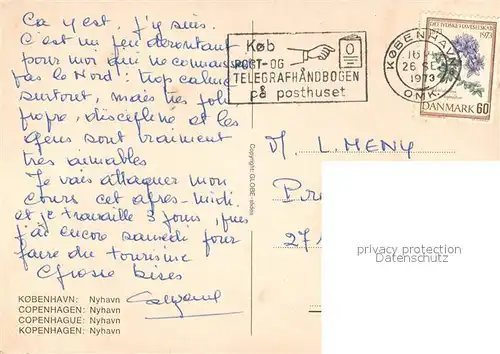 Ca y est. J'y suis.
C'est un peu déroutant
pour moi qui ne connais
pas le Nord : trop calme
surtout, mais très joli
propre, discipline et les
gens sont vraiment
très aimables
Je vais attaquer mon
cours cet après-midi
et je travaille 3 jours, puis
j'ai encore samedi pour
faire du tourisme
Grosses bises
KØBENHAVN: Nyhavn
COPENHAGEN: Nyhavn
COPENHAGUE: Nyhavn
KOPENHAGEN: Nyhavn
Copyright: GLOBE
Køb
POST-OG
TELEGRAFHÅNDBOGEN
på posthuset
KØBENHAVN
26 SE
1973
OMK.
DET JYDSKE HAVESELSKAB
1973
DANMARK 60
M. L. MENY
privacy protection
Datenschutz